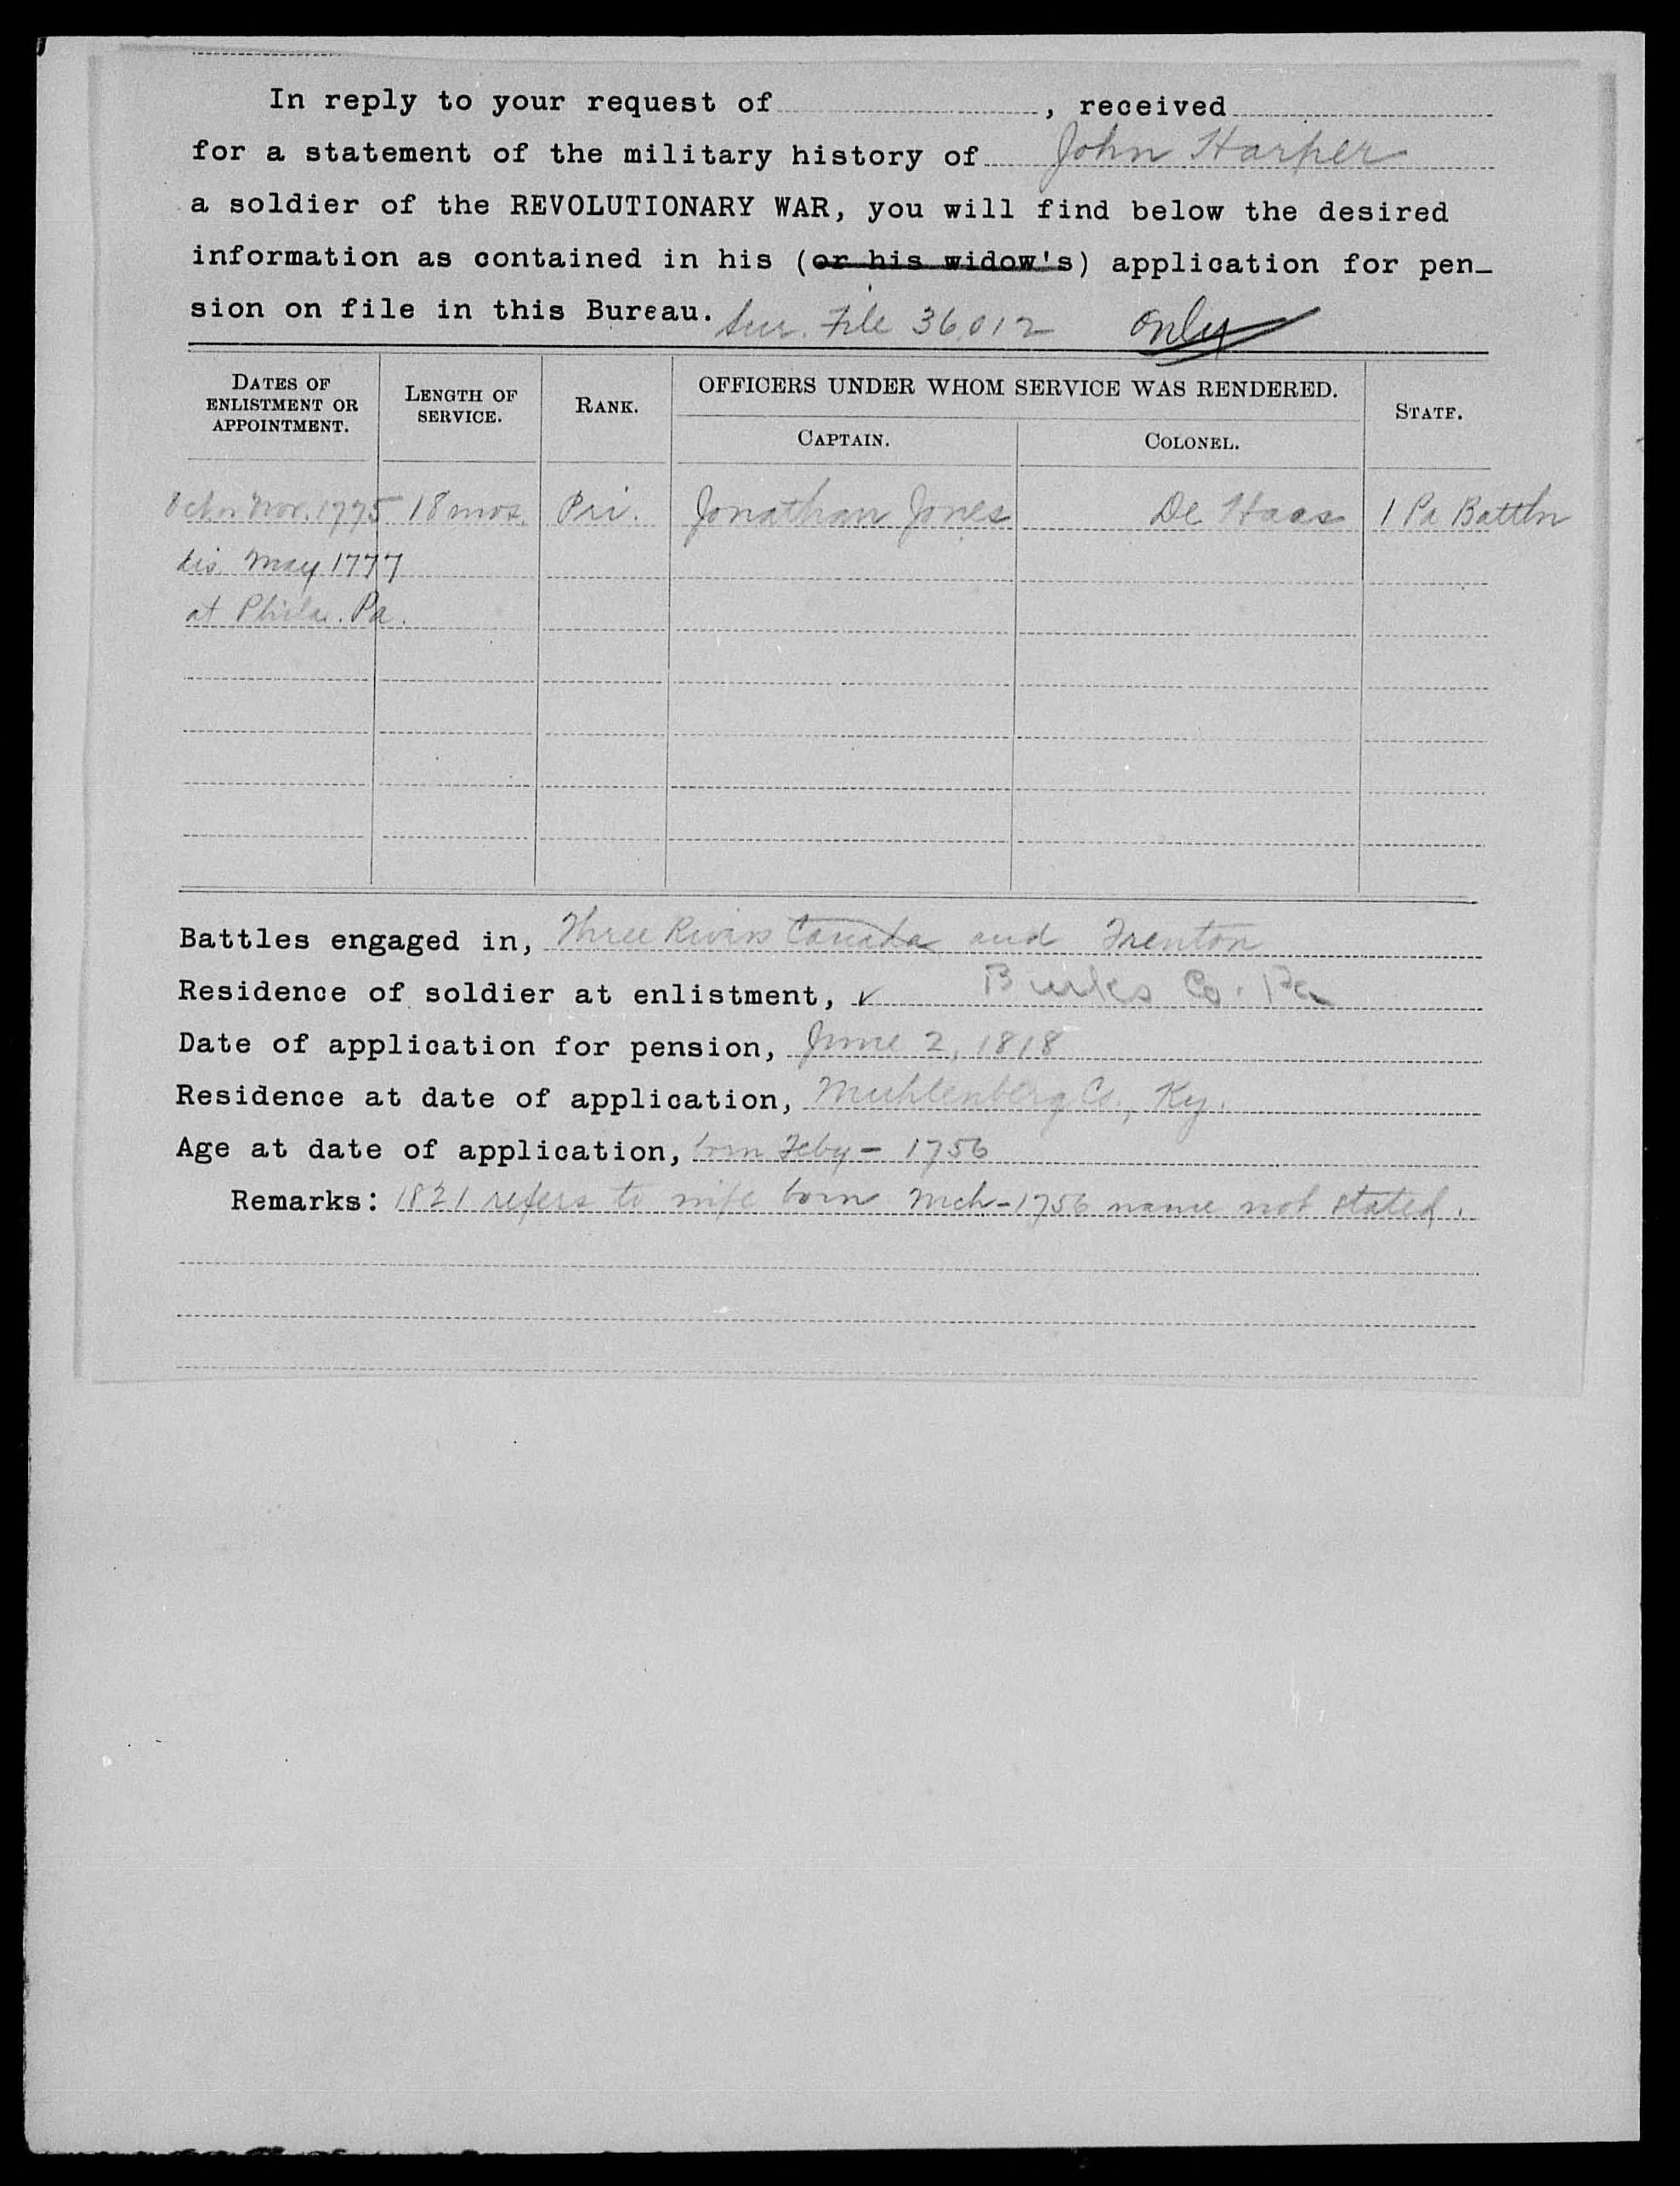 In reply to your request of , received
for a statement of the military history of John Harper
a soldier of the REVOLUTIONARY WAR, you will find below the desired
information as contained in his (or his widow's) application for pen-
sion on file in this Bureau. Sur. File 36,012 only
DATES OF ENLISTMENT OR APPOINTMENT. LENGTH OF SERVICE. RANK. OFFICERS UNDER WHOM SERVICE WAS RENDERED. STATE.
CAPTAIN. COLONEL.
Oct or Nov. 1775 18 mos. Pri. Jonathan Jones De Haas 1 Pa Battln
dis May 1777
at Phila. Pa.
Battles engaged in, Three Rivers Canada and Trenton
Residence of soldier at enlistment, ✓ Co. Pa
Date of application for pension, June 2, 1818
Residence at date of application, Muhlenberg Co., Ky.
Age at date of application, born Feby - 1756
Remarks: 1821 refers to wife born Mch - 1756 name not stated.